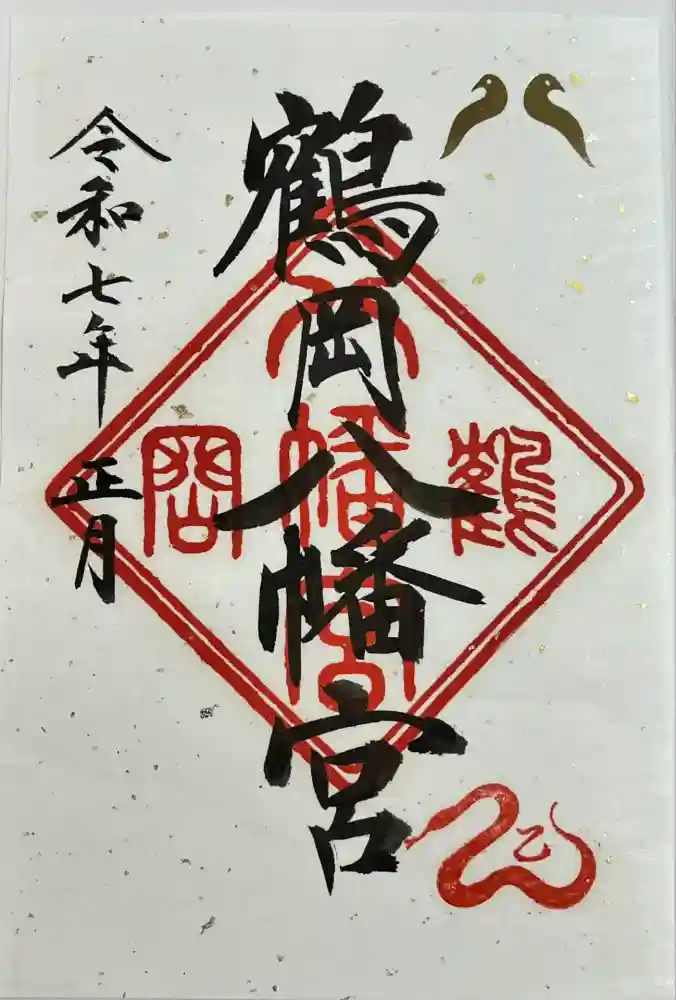 鶴岡八幡宮
令和七年 正月
鶴岡八幡宮
乙